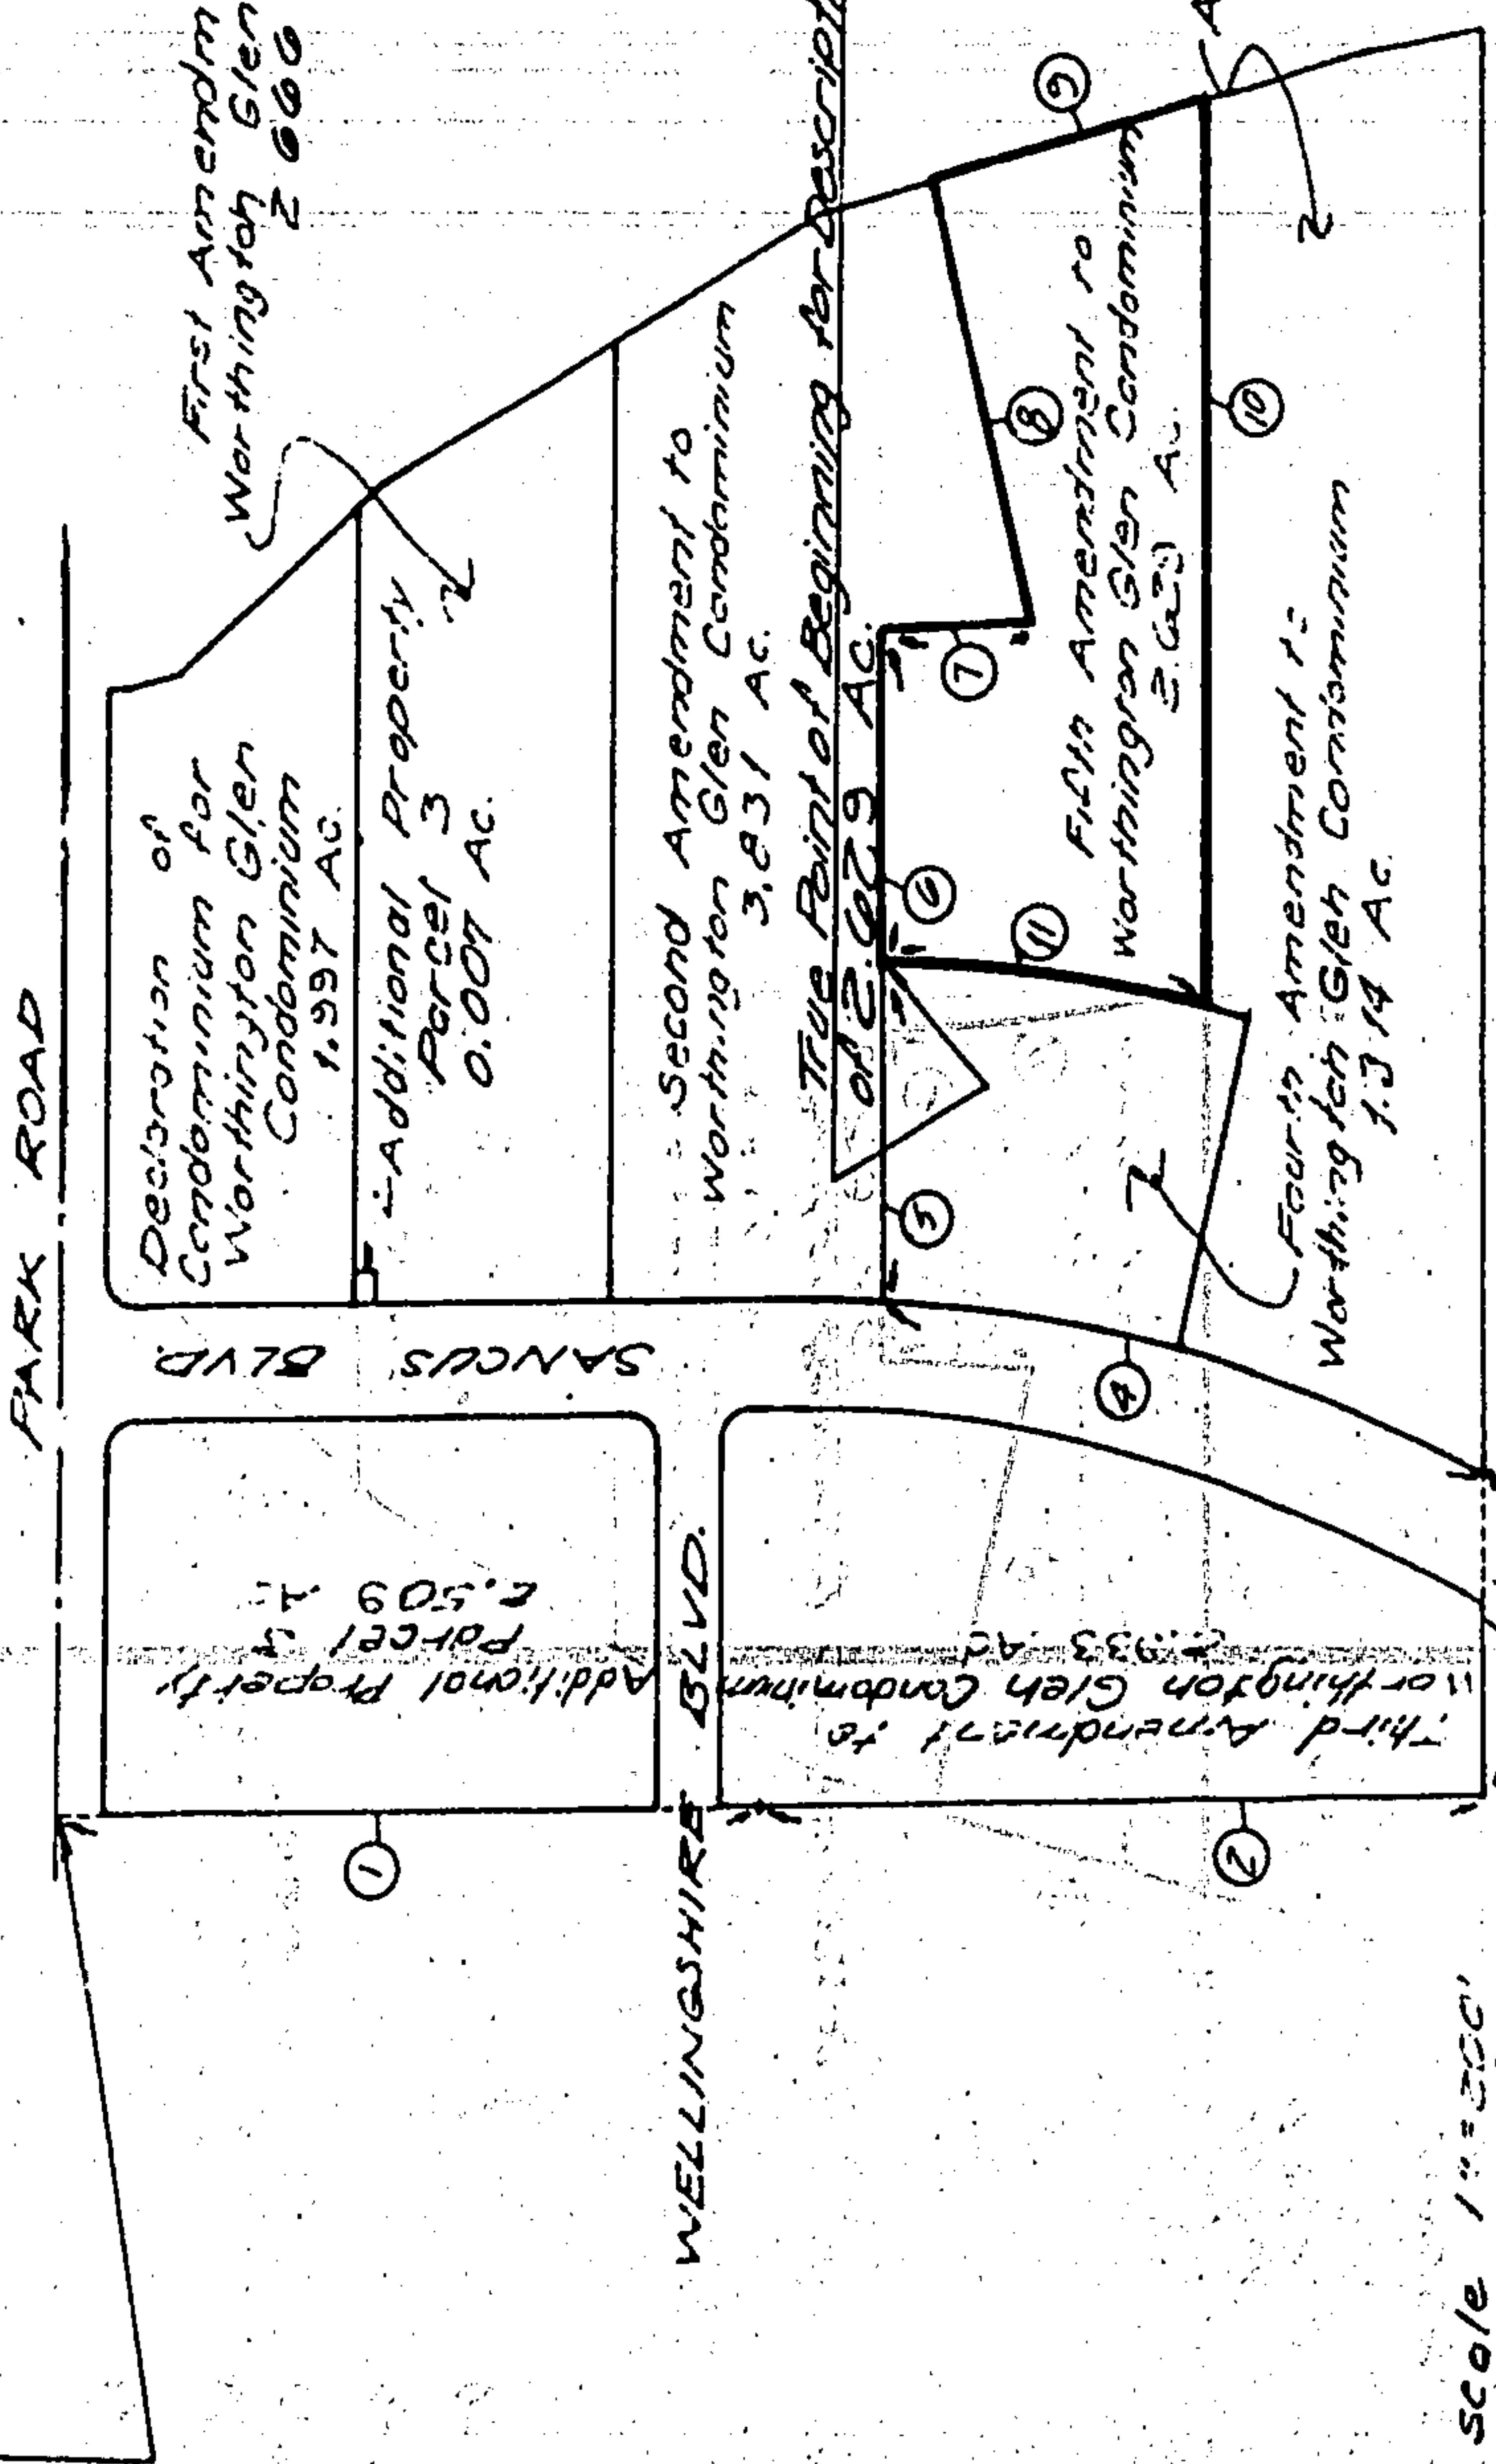 PARK ROAD
First Amendm
Worthington Glen
2 666
Declaration of
Condominium for
Worthington Glen
Condominium
1.997 Ac.
Additional Property
Parcel 3
0.007 Ac.
Second Amendment to
Worthington Glen Condominium
3.831 Ac.
True Point of Beginning for Descript
of 2.629 Ac.
Fifth Amendment to
Worthington Glen Condominium
2.629 Ac.
Fourth Amendment to
Worthington Glen Condominium
1.314 Ac
SANCUS BLVD.
WELLINGSHIRE BLVD.
Additional Property
Parcel
2.509
Third Amendment to
Worthington Glen Condominium
Ac
1
2
4
5
6
7
8
9
10
11
A
Scale 1"=200'